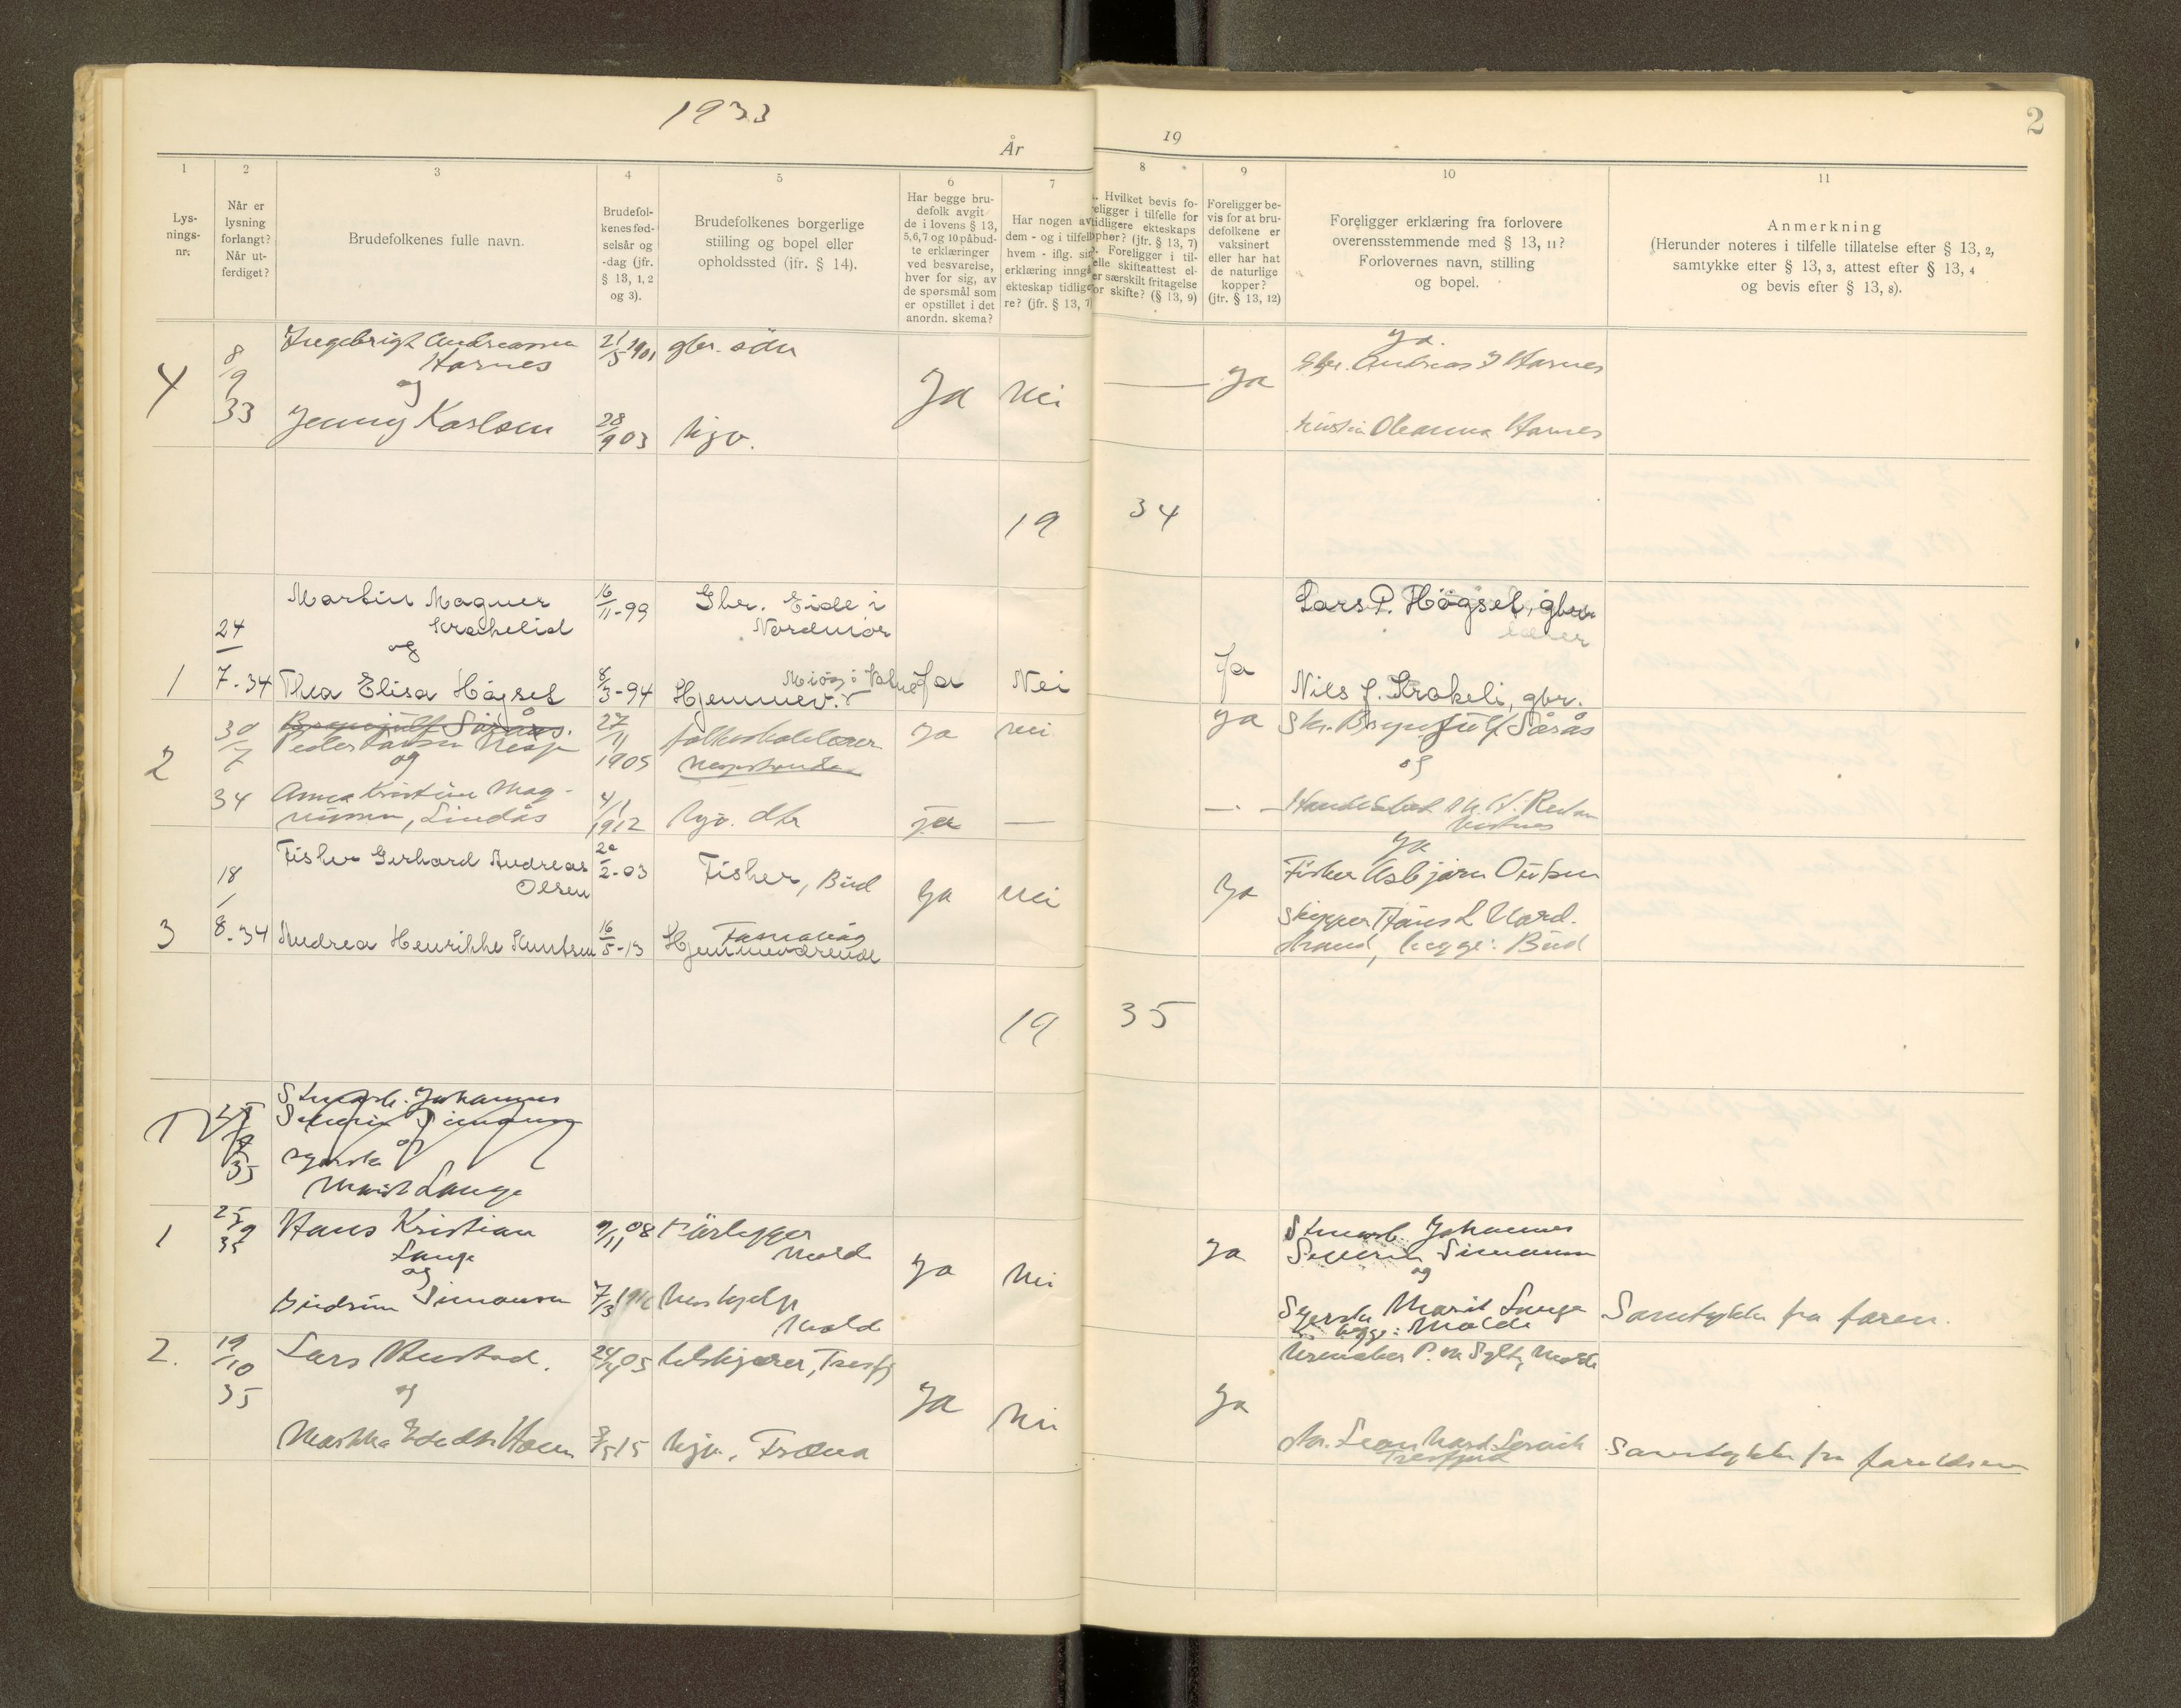 1933
År
19
2
1
Lys-
nings-
nr.
2
Når er
lysning
forlangt?
Når ut-
ferdiget?
3
Brudefolkenes fulle navn.
4
Brudefol-
kenes fød-
selsår og
-dag (jfr.
§ 13, 1, 2
og 3).
5
Brudefolkenes borgerlige
stilling og bopel eller
opholdssted (jfr. § 14).
6
Har begge bru-
defolk avgit
de i lovens § 13,
5,6,7 og 10 påbud-
te erklæringer
ved besvarelse,
hver for sig, av
de spørsmål som
er opstillet i det
anordn. skema?
7
Har nogen av
dem - og i tilfelle
hvem - iflg. sin
erklæring inngå
ekteskap tidlige
re? (jfr. § 13, 7
8
Hvilket bevis fo-
religger i tilfelle for
tidligere ekteskaps
ophør? (jfr. § 13, 7)
Foreligger i til-
elle skifteattest el-
er særskilt fritagelse
or skifte? (§ 13, 9)
9
Foreligger be-
vis for at bru-
defolkene er
vaksinert
eller har hat
de naturlige
kopper?
(jfr. § 13, 12)
10
Foreligger erklæring fra forlovere
overensstemmende med § 13, 11?
Forlovernes navn, stilling
og bopel.
11
Anmerkning
(Herunder noteres i tilfelle tillatelse efter § 13, 2,
samtykke efter § 13, 3, attest efter § 13, 4
og bevis efter § 13, 8).
4
8/9 33
Ingebrigt Andreassen
Harnes
og
Jenny Karlsen
21/5 1901
28/9 03
gbr. sön
hjv.
Ja
Nei
Ja
Ja.
Gbr. Andreas J Harnes
Oleanna Harnes
19 34
1
24/7-34
Martin Magner
Krakelid
og
Thea Elisa Högset
16/11-99
8/3-94
Gbr. Eide i
Nordmör
Hjemmev.
Ja
Nei
Ja
Lars P. Högset, gbr.
Nils J. Krakeli, gbr.
2
30/7 34
Brynjulf Sörås.
Peder Nesje
og
Anna Kristine Mag-
nussen, Lindås
27/11 1905
4/1 1912
folkeskolelærer
hjv. dtr
Ja
ja
Nei
Ja
Brynjulf Sörås
og
3
18/8-34
Fisher Gerhard Andreas
Olsen
Andrea Henrikke Knutsen
20/2-03
16/5-13
Fisher, Bud
Hjemmeværende
Ja
Nei
Ja
Ja
Fisker Asbjörn
skipper Hans L Nord.
strand, begge: Bud
19 35
1
25/9 35
Johannes
Severin Simonsen
og
syerske
Marit Lange
1
25/9 35
Hans Kristian
Lange
og
Gudrun Simonsen
9/11 08
7/3
Molde
Molde
Ja
Nei
Ja
Johannes
Severin Simonsen
og
Syerske Marit Lange
begge: Molde
Samtykke fra faren.
2.
19/10 35
Lars Rustad.
og
Martha Hoem
24/4 05
3/5 15
hjv. Fræna
Ja
Nei
Ja
Urmaker P. M Sylte, Molde
Leonhard
Tresfjord
Samtykke fra foreldrene